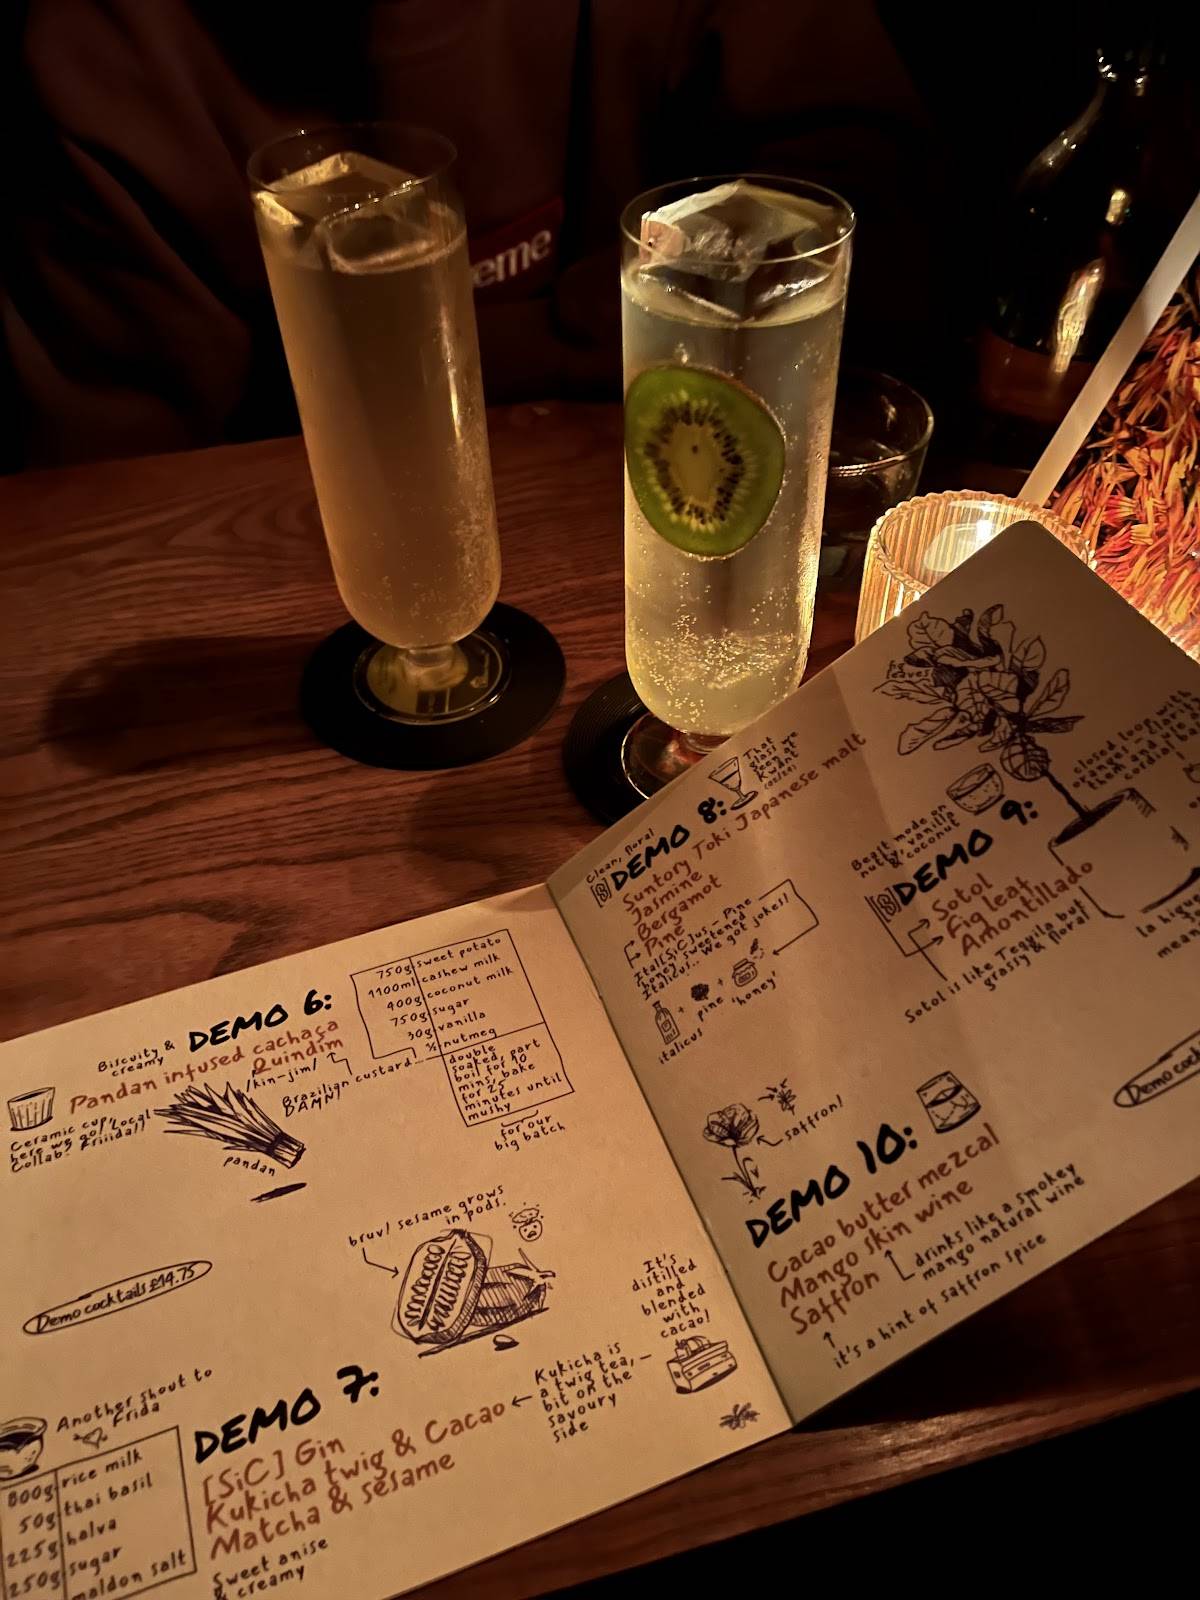 eme
Biscuity &
creamy
DEMO 6:
Pandan infused cachaça
Quindim
/kin-jim/
Brazilian custard...
DAMN!
Ceramic cup,
here we go! Local
Collab? Friiida!!
pandan
750g sweet potato
1100ml cashew milk
400g coconut milk
750g sugar
30g vanilla
½ nutmeg
double
soaked, part
boil for 10
mins/ bake
for 25
minutes until
mushy
for our
big batch
Demo cocktails £14.75
bruv! sesame grows
in pods.
Another shout to
Frida
800g rice milk
50g thai basil
225g halva
250g sugar
maldon salt
DEMO 7:
[SiC] Gin
Kukicha twig & Cacao
Matcha & sesame
Sweet anise
& creamy
Kukicha is
a twig tea,
bit on the
savoury
side
It's
distilled
and
blended
with
cacao!
Clean, floral
[S] DEMO 8:
Suntory Toki Japanese malt
Jasmine
Bergamot
Pine
That
glass we
seen at
Kwānt
Ital[SiC]us - Pine -
honey sweetened
Italicus... We got jokes!
italicus
+
pine
+
'honey'
fig
leaves
Beast mode on
nutty, vanilla
& coconut
[S] DEMO 9:
Sotol
Fig leaf
Amontillado
Sotol is like Tequila but
grassy & floral
closed loop with
oranges
them and we
cordial
la higue
mean
Demo cock
saffron!
DEMO 10:
Cacao butter mezcal
Mango skin wine
Saffron
drinks like a smokey
mango natural wine
it's a hint of saffron spice